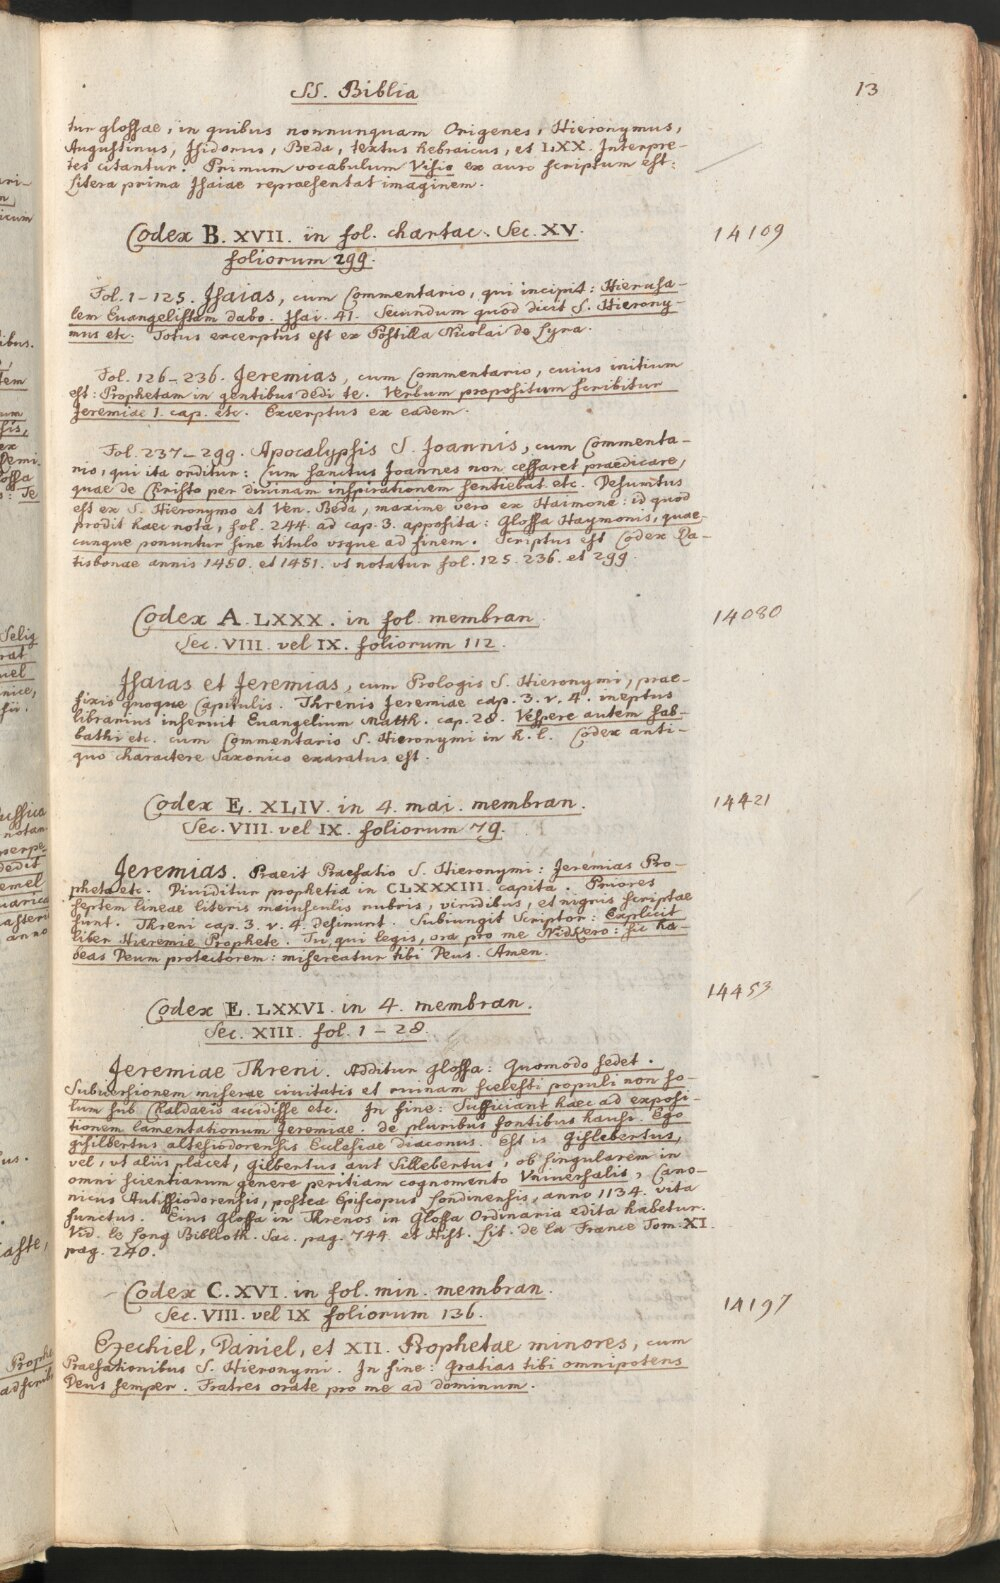 SS. Biblia
13
tur glossae, in quibus nonnunquam Origenes, Hieronymus,
Augustinus, Isidorus, Beda, textus hebraicus, et LXX. Interpre-
tes citantur. Primum vocabulum Visio ex auro scriptum est:
Litera prima Isaiae repraesentat imaginem.
Codex B. XVII. in fol. chartac. Sec. XV.
14109
foliorum 299.
Fol. 1-125. Isaias, cum Commentario, qui incipit: Hierusa-
lem Euangelistam dabo. Isai. 41. Secundum quod dicit S. Hierony-
mus etc. Totus excerptus est ex Postilla Nicolai de Lyra.
Fol. 126-236. Jeremias, cum Commentario, cuius initium
est: Prophetam in gentibus dedi te. Verbum propositum scribitur
Jeremiae 1. cap. etc. Excerptus ex eadem.
Fol. 237-299. Apocalypsis S. Joannis, cum Commenta-
rio, qui ita orditur: Cum sanctus Joannes non cessaret praedicare,
quae de Christo per divinam inspirationem sentiebat etc. Desumtus
est ex S. Hieronymo et Ven. Beda, maxime vero ex Haimone: id quod
prodit haec nota, fol. 244. ad cap. 3. apposita: Glossa Haymonis, quae-
cunque ponuntur sine titulo vsque ad finem. Scriptus est Codex Ra-
tisbonae annis 1450. et 1451. vt notatur fol. 125. 236. et 299.
Codex A. LXXX. in fol. membran.
14080
Sec. VIII. vel IX. foliorum 112.
Isaias et Jeremias, cum Prologis S. Hieronymi, prae-
fixis quoque Capitulis. Threnis Jeremiae cap. 3. v. 4. ineptus
librarius inseruit Euangelium Matth. cap. 28. Vespere autem sab-
bathi etc. cum Commentario S. Hieronymi in h. l. Codex anti-
quo charactere Saxonico exaratus est.
Codex E. XLIV. in 4. mai. membran.
14421
Sec. VIII. vel IX. foliorum 79.
Jeremias. Praeit Praefatio S. Hieronymi: Jeremias Pro-
pheta etc. Diuiditur prophetia in CLXXXIII. capita. Priores
septem lineae literis maiusculis rubris, viridibus, et nigris scriptae
sunt. Threni cap. 3. v. 4. desinunt. Subiungit Scriptor: Explicit
liber Hieremie Prophete. Tu, qui legis, ora pro me Nidkero: sic ha-
beas Deum protectorem: misereatur tibi Deus. Amen.
Codex E. LXXVI. in 4. membran.
14453
Sec. XIII. fol. 1-28.
Jeremiae Threni. Additur glossa: Quomodo sedet.
Subuersionem miserae ciuitatis et ruinam scelesti populi non so-
lum sub Chaldaeis accidisse etc. In fine: Sufficiant haec ad exposi-
tionem lamentationum Jeremiae. de pluribus fontibus hausi. Ego
gisilbertus altesiodorensis Ecclesiae diaconus. Est is Gislebertus,
vel, vt aliis placet, Gilbertus aut Sillebertus, ob singularem in
omni scientiarum genere peritiam cognomento Vniuersalis, Cano-
nicus Antissiodorensis, postea Episcopus Londinensis, anno 1134. vita
functus. Eius Glossa in Threnos in Glossa Ordinaria edita habetur.
Vid. le Long Biblioth. Sac. pag. 744. et Hist. Lit. de la France Tom. XI.
pag. 240.
Codex C. XVI. in fol. min. membran.
14197
Sec. VIII. vel IX foliorum 136.
Ezechiel, Daniel, et XII. Prophetae minores, cum
Praefationibus S. Hieronymi. In fine: Gratias tibi omnipotens
Deus semper. Fratres orate pro me ad dominum.